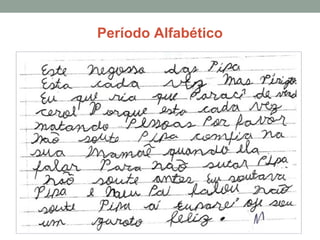 Período Alfabético
Este negosso das Pipa
Esta cada vez mas Pirigo
Eu que ria que Paracì de vend
cerol Porque esta cada vez
matando Pessoas Por favor
não soute Pipa comfia na
sua Mamãe quando ela
falar Para não sutar Pipa
não soute antes Eu soutava
Pipa e Meu Pai falou não
soute Pipa
um garoto feliz.